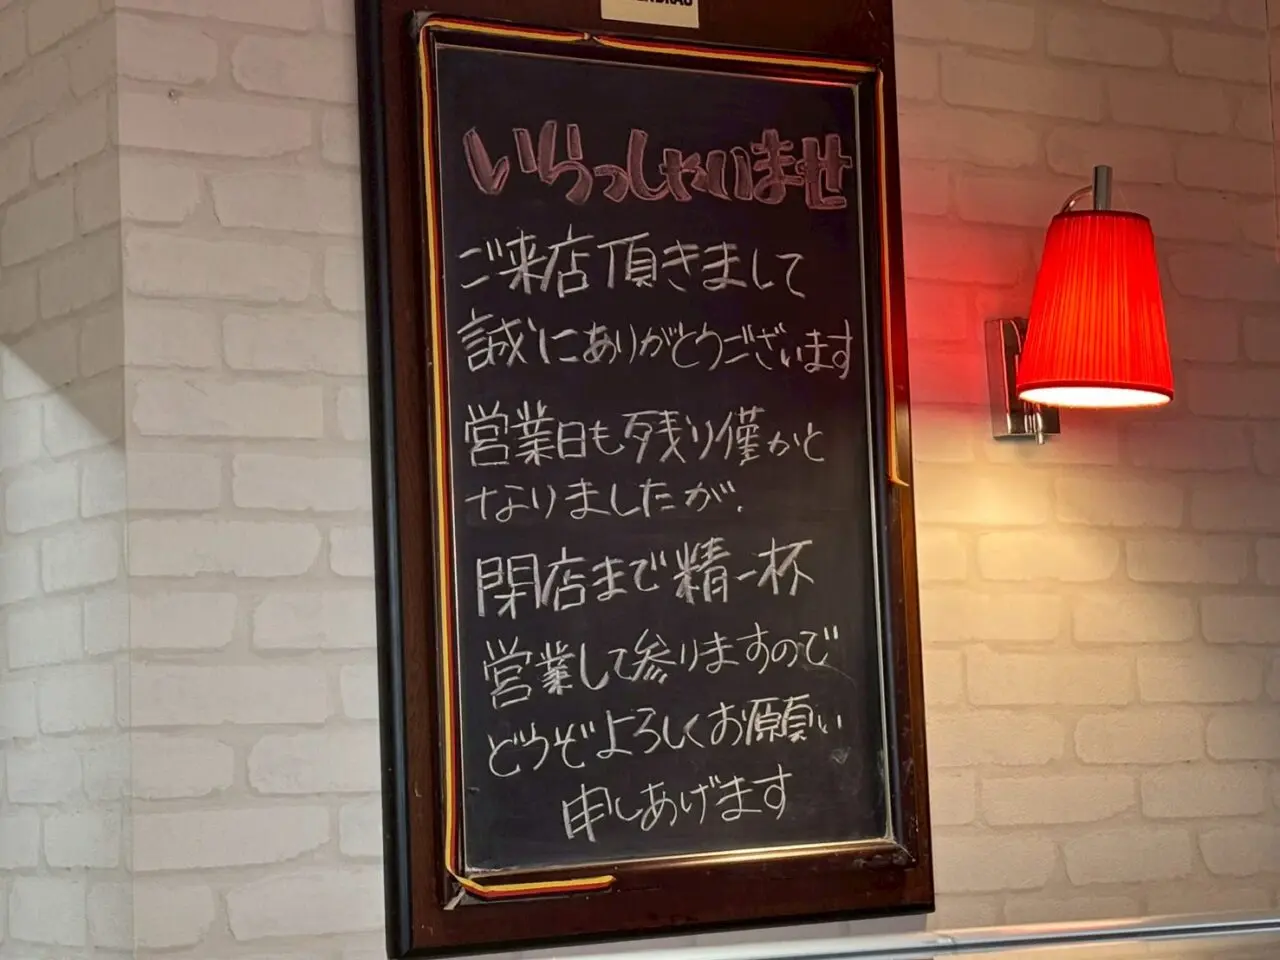 いらっしゃいませ
ご来店頂きまして
誠にありがとうございます
営業日も残り僅かと
なりましたが、
閉店まで精一杯
営業して参りますので
どうぞよろしくお願い
申しあげます